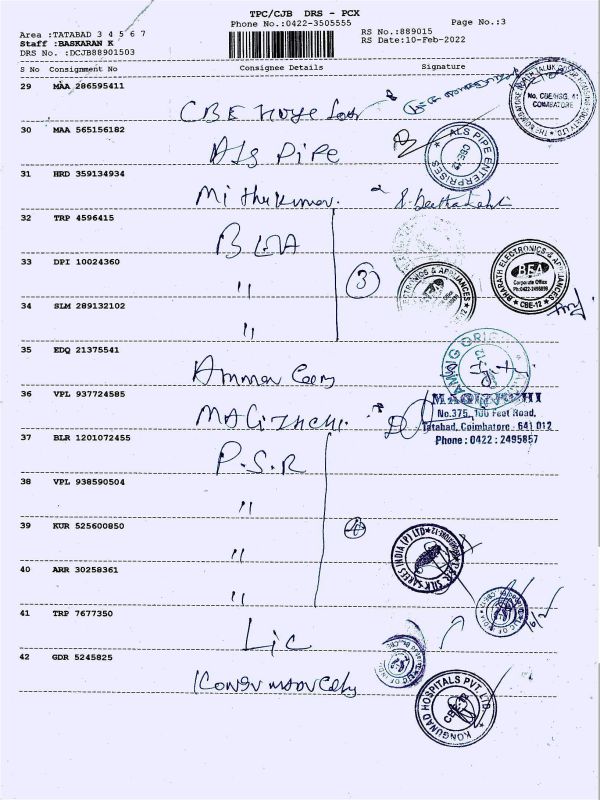 TPC/CJB DRS - PCX
Phone No.:0422-3505555
Page No.:3
Area :TATABAD 3 4 5 6 7
RS No.:889015
Staff :BASKARAN K
RS Date:10-Feb-2022
DRS No. :DCJB88901503
S No Consignment No Consignee Details Signature
29 MAA 286595411
CBE
No. CBE/HSG. 41
COIMBATORE
30 MAA 565156182
ALS PIPE
ALS PIPE ENTERPRISES
CBE-12
31 HRD 359134934
Mithukumar.
32 TRP 4596415
BEA
33 DPI 10024360
"
3
BHARATH ELECTRONICS & APPLIANCES
BEA
Corporate Office
CBE-12
34 SLM 289132102
"
35 EDQ 21375541
36 VPL 937724585
MAGIZHCHI.
MAGIZHCHI
No.375, 100 Feet Road,
Tatabad, Coimbatore - 641 012
Phone : 0422 : 2495857
37 BLR 1201072455
P.S.R
38 VPL 938590504
"
39 KUR 525600850
"
4
SILK SAREES INDIA (P) LTD
40 ARR 30258361
"
41 TRP 7677350
LIC
42 GDR 5245825
KONGUNAD HOSPITALS PVT. LTD